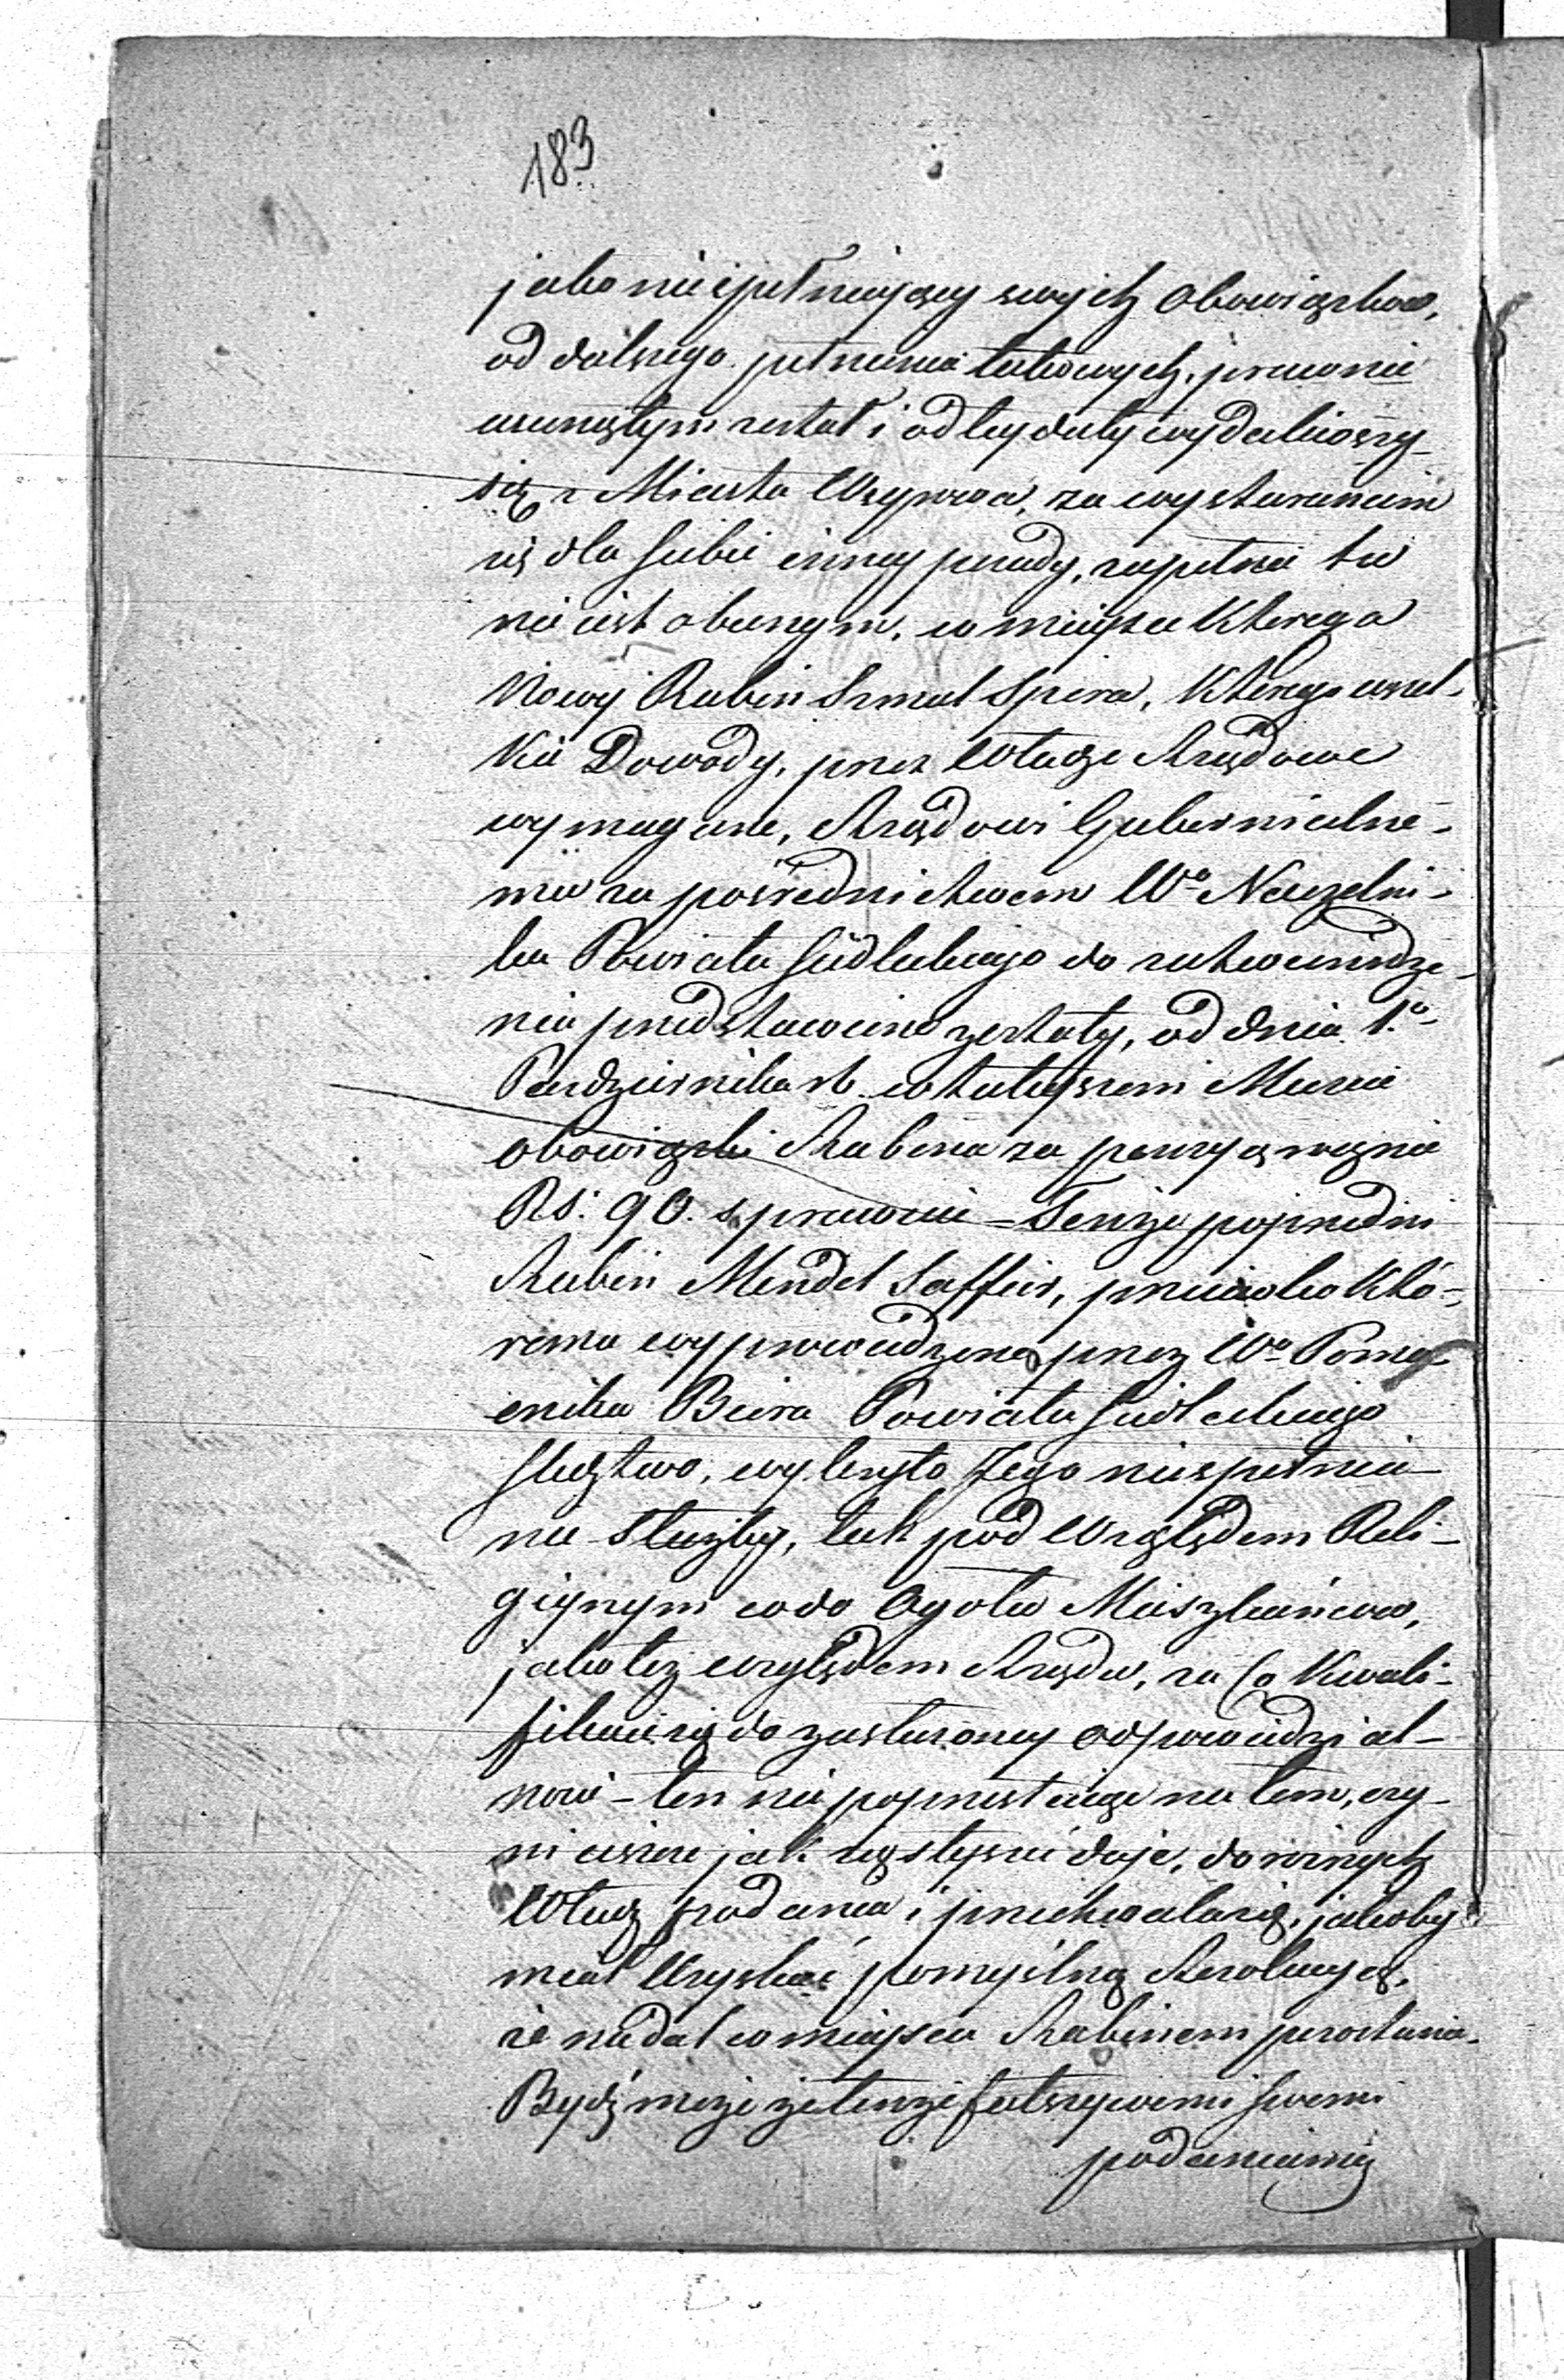 183
jako niespełniający swych obowiązków,
od dalszego pełnienia takowych, prawnie
usuniętym został i od tey daty wydaliwszy
się z Miasta Mszywa, za wystaraniem
się dla siebie inney posady, zupełnie tu
nie iest obecnym, w mieyscu którego
Nowy Rabin Szmul Spira, którego wszel-
kie Dowody, przez Władze Rządowe
wymagane, Rządowi Gubernialne-
mu za pośrednictwem Wo Naczelni-
ka Powiatu Siedleckiego do zatwierdze-
nia przedstawione zostały, od dnia 1o
Października rb. w tuteyszem Mieście
obowiązki Rabina za pensyą roczną
RS. 90. sprawuie – Tenże poprzedni
Rabin Mendel Saffier, przeciwko któ-
remu wyprowadzone przez Wo Pomo-
cnika Biura Powiatu Siedleckiego
śledztwo, wykryło Jego niespełnia-
nie służby, tak pod względem Reli-
giynym co do Ogółu Mieszkańców,
jako też względem Rządu, za co kwali-
fikuie się do zasłużoney odpowiedzial-
ności – ten nie poprzestaiąc na tem, czy-
ni ieszcze jak się słyszeć daje, do różnych
Władz podania i przechwala się, jakoby
miał uzyskać pomyślną Rezolucyą,
że nadal w mieyscu Rabinem pozostanie.
Bydź może że tenże fałszywemi swemi
podaniami